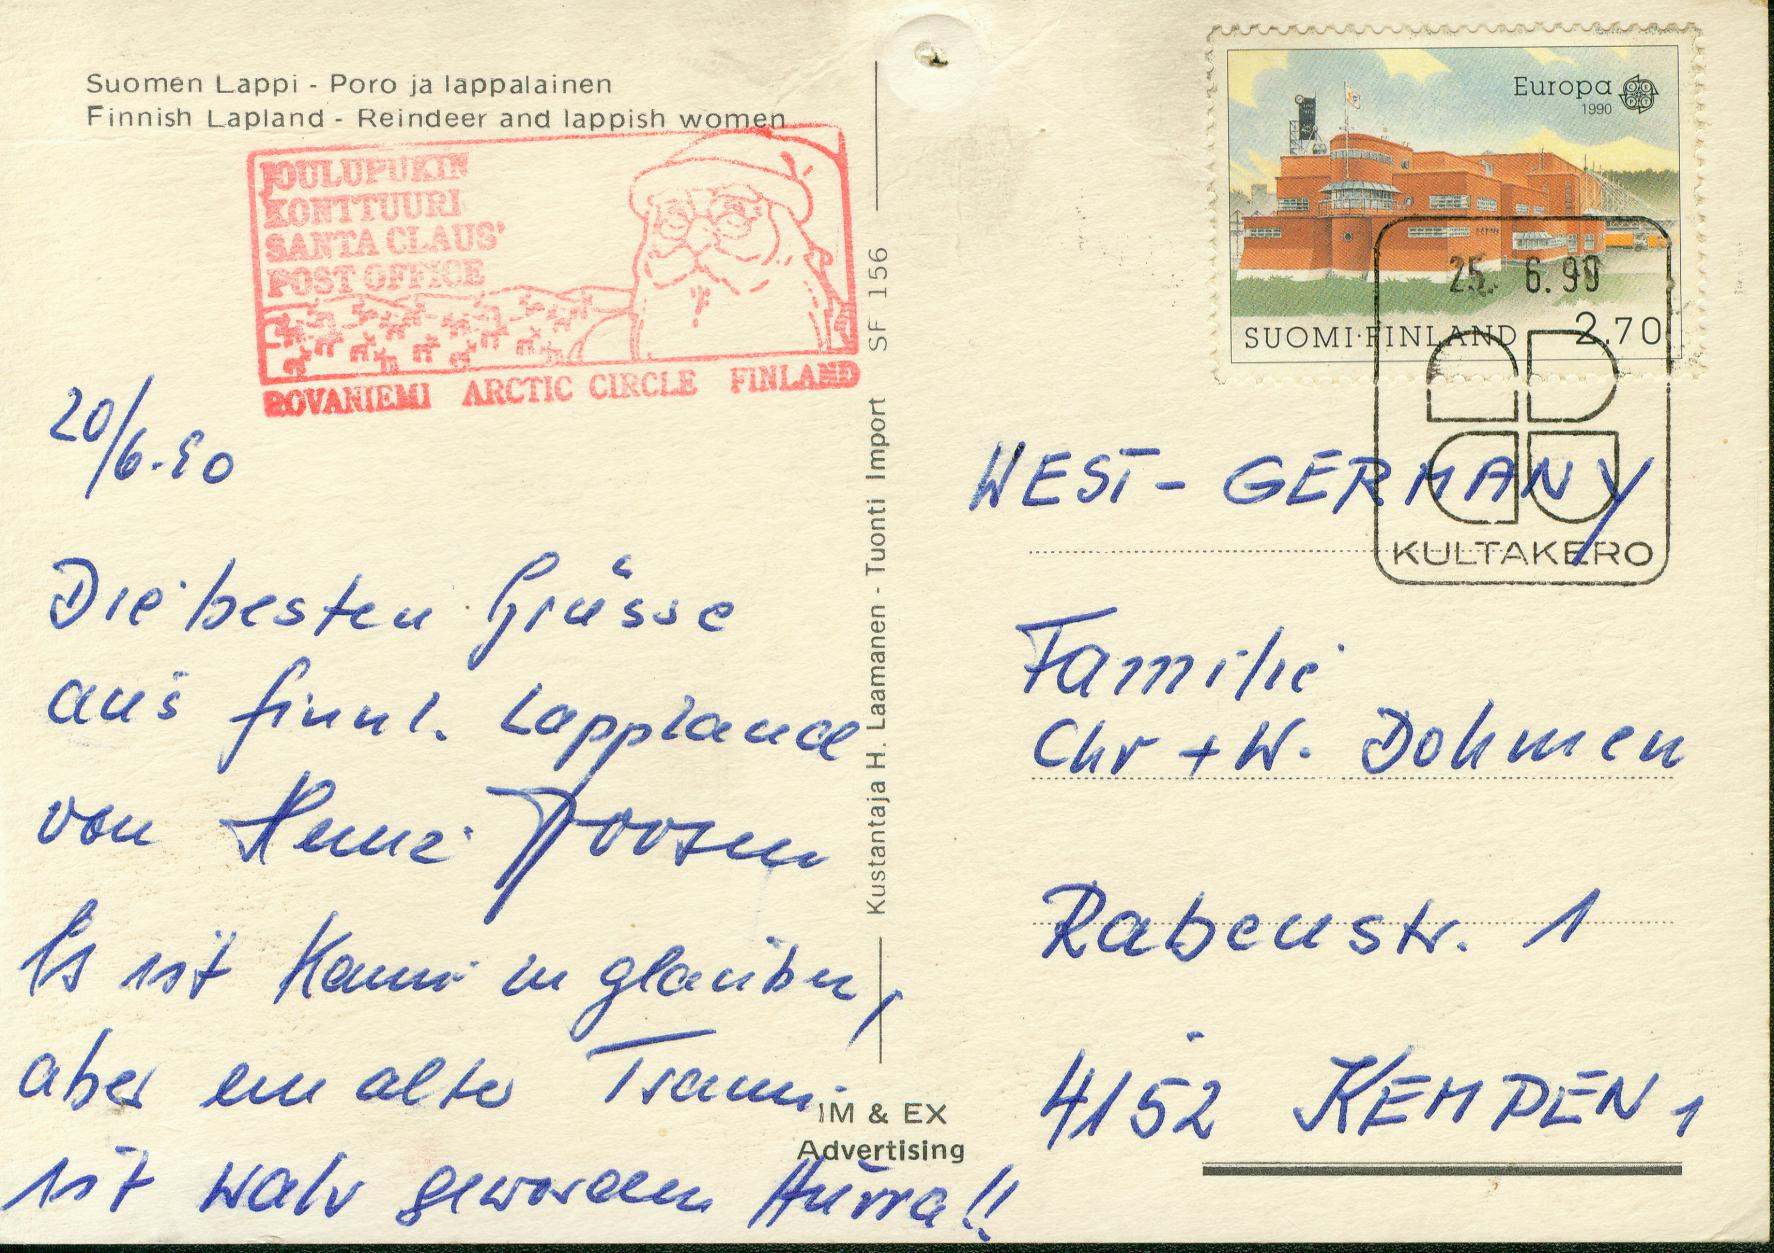 Suomen Lappi - Poro ja lappalainen
Finnish Lapland - Reindeer and lappish women
JOULUPUKIN
KONTTUURI
SANTA CLAUS'
POST OFFICE
ROVANIEMI ARCTIC CIRCLE FINLAND
20/6.90
Die besten Grüsse
aus finnl. Lappland
von Heinz
Es ist kaum zu glauben,
aber ein alter Traum
ist wahr geworden Hurra!!
Kustantaja H. Laamanen - Tuonti Import SF 156
IM & EX
Advertising
Europa
1990
SUOMI·FINLAND 2.70
25. 6.90
KULTAKERO
WEST-GERMANY
Familie
Chr + W. Dohmen
Rabenstr. 1
4152 KEMPEN 1